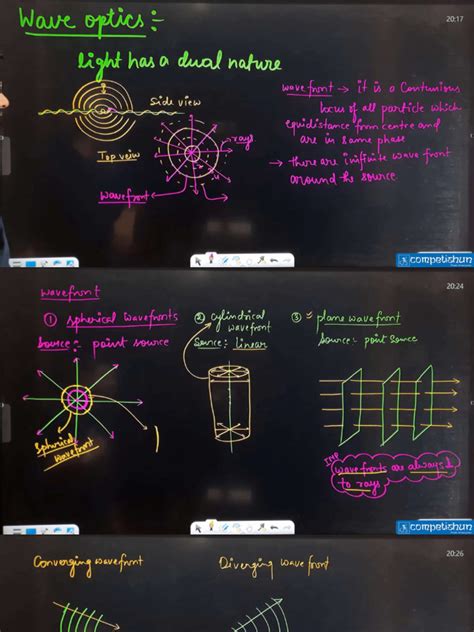 Wave optics:-
20:17
Light has a dual nature
Side view
Top veiw
rays
wavefront
wavefront → it is a Continuous
locus of all particle which
equidistance form centre and
are in same phase
→ there are infinite wave front
around the source
competishun
20:24
wavefront
① spherical wavefronts
Source:- point source
Spherical
wavefront
② cylindrical
wavefront
Source: linear
③ plane wavefront
Source:- point source
IMP
wavefronts are always ⊥
to rays
competishun
20:26
Converging wavefront
Diverging wavefront